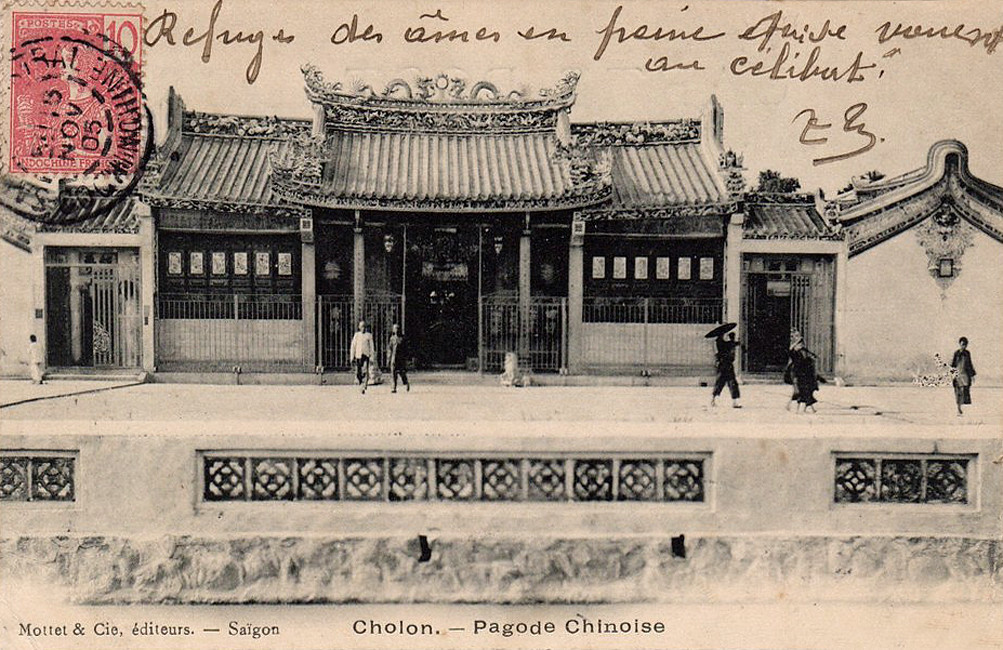 Refuges des âmes en peine qui se vouent
au célibat.
POSTES 10
15
NOV
05
Mottet & Cie, éditeurs. — Saïgon
Cholon. — Pagode Chinoise